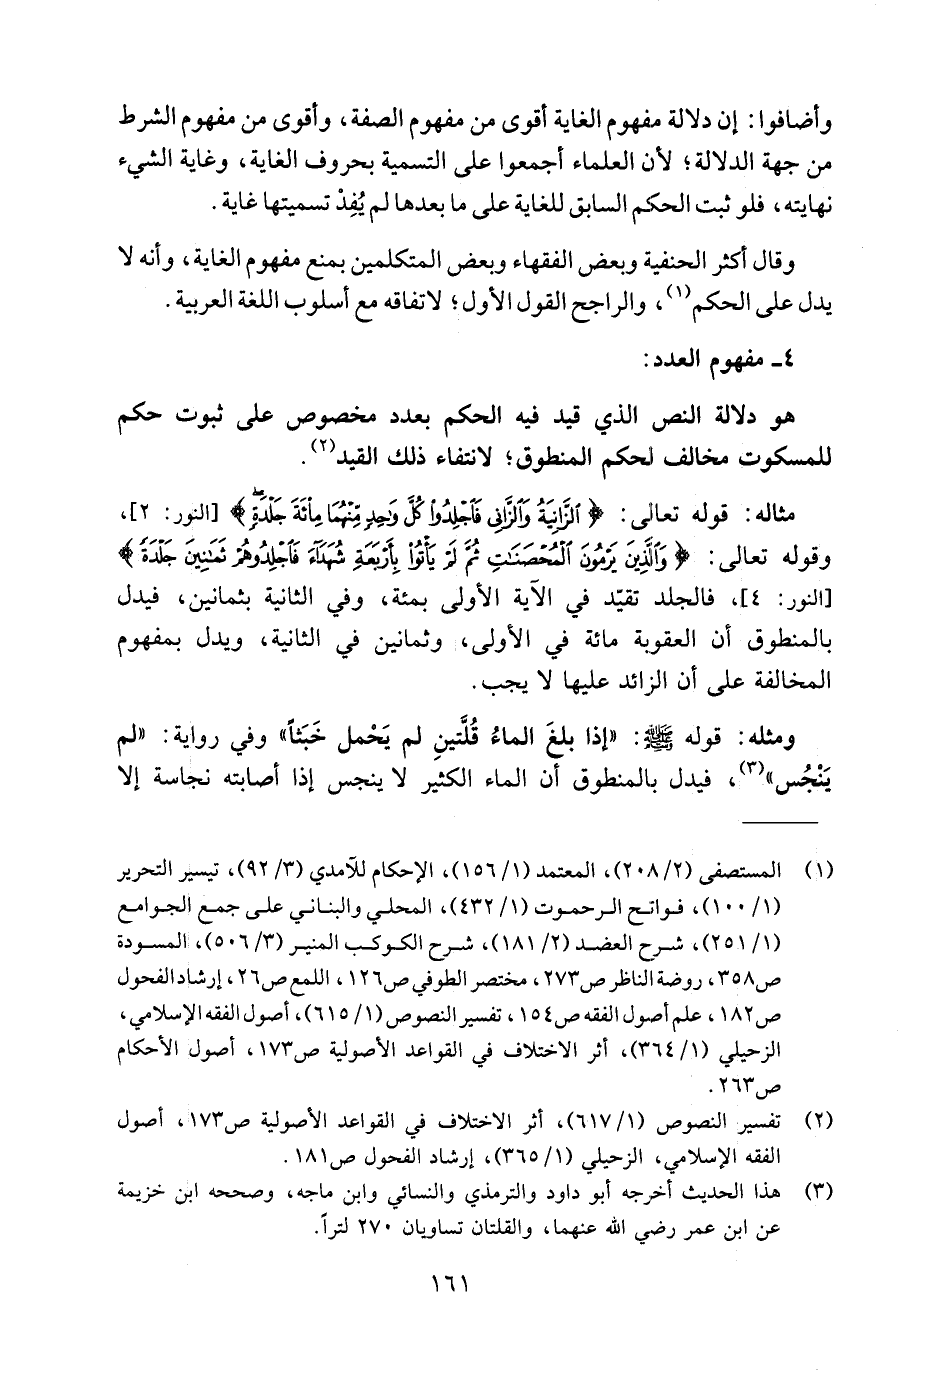 وأضافوا: إن دلالة مفهوم الغاية أقوى من مفهوم الصفة، وأقوى من مفهوم الشرط
من جهة الدلالة؛ لأن العلماء أجمعوا على التسمية بحروف الغاية، وغاية الشيء
نهايته، فلو ثبت الحكم السابق للغاية على ما بعدها لم يُفِدْ تسميتها غاية.
وقال أكثر الحنفية وبعض الفقهاء وبعض المتكلمين بمنع مفهوم الغاية، وأنه لا
يدل على الحكم(١)، والراجح القول الأول؛ لاتفاقه مع أسلوب اللغة العربية.
٤ـ مفهوم العدد:
هو دلالة النص الذي قيد فيه الحكم بعدد مخصوص على ثبوت حكم
للمسكوت مخالف لحكم المنطوق؛ لانتفاء ذلك القيد(٢).
مثاله: قوله تعالى: ﴿ ٱلزَّانِيَةُ وَٱلزَّانِي فَٱجْلِدُوا۟ كُلَّ وَٰحِدٍ مِّنْهُمَا مِا۟ئَةَ جَلْدَةٍ ۖ ﴾ [النور: ٢]،
وقوله تعالى: ﴿ وَٱلَّذِينَ يَرْمُونَ ٱلْمُحْصَنَٰتِ ثُمَّ لَمْ يَأْتُوا۟ بِأَرْبَعَةِ شُهَدَآءَ فَٱجْلِدُوهُمْ ثَمَٰنِينَ جَلْدَةً ﴾
[النور: ٤]، فالجلد تقيّد في الآية الأولى بمئة، وفي الثانية بثمانين، فيدل
بالمنطوق أن العقوبة مائة في الأولى، وثمانين في الثانية، ويدل بمفهوم
المخالفة على أن الزائد عليها لا يجب.
ومثله: قوله ﷺ: «إذا بلغَ الماءُ قُلَّتينِ لم يَحْمل خَبَثاً» وفي رواية: «لم
يَنْجُس»(٣)، فيدل بالمنطوق أن الماء الكثير لا ينجس إذا أصابته نجاسة إلا
(١) المستصفى (٢/ ٢٠٨)، المعتمد (١/ ١٥٦)، الإحكام للآمدي (٣/ ٩٢)، تيسير التحرير
(١/ ١٠٠)، فواتح الرحموت (١/ ٤٣٢)، المحلي والبناني على جمع الجوامع
(١/ ٢٥١)، شرح العضد (٢/ ١٨١)، شرح الكوكب المنير (٣/ ٥٠٦)، المسودة
ص٣٥٨، روضة الناظر ص٢٧٣، مختصر الطوفي ص١٢٦، اللمع ص٢٦، إرشاد الفحول
ص١٨٢، علم أصول الفقه ص١٥٤، تفسير النصوص (١/ ٦١٥)، أصول الفقه الإسلامي،
الزحيلي (١/ ٣٦٤)، أثر الاختلاف في القواعد الأصولية ص١٧٣، أصول الأحكام
ص٢٦٣.
(٢) تفسير النصوص (١/ ٦١٧)، أثر الاختلاف في القواعد الأصولية ص١٧٣، أصول
الفقه الإسلامي، الزحيلي (١/ ٣٦٥)، إرشاد الفحول ص١٨١.
(٣) هذا الحديث أخرجه أبو داود والترمذي والنسائي وابن ماجه، وصححه ابن خزيمة
عن ابن عمر رضي الله عنهما، والقلتان تساويان ٢٧٠ لتراً.
١٦١